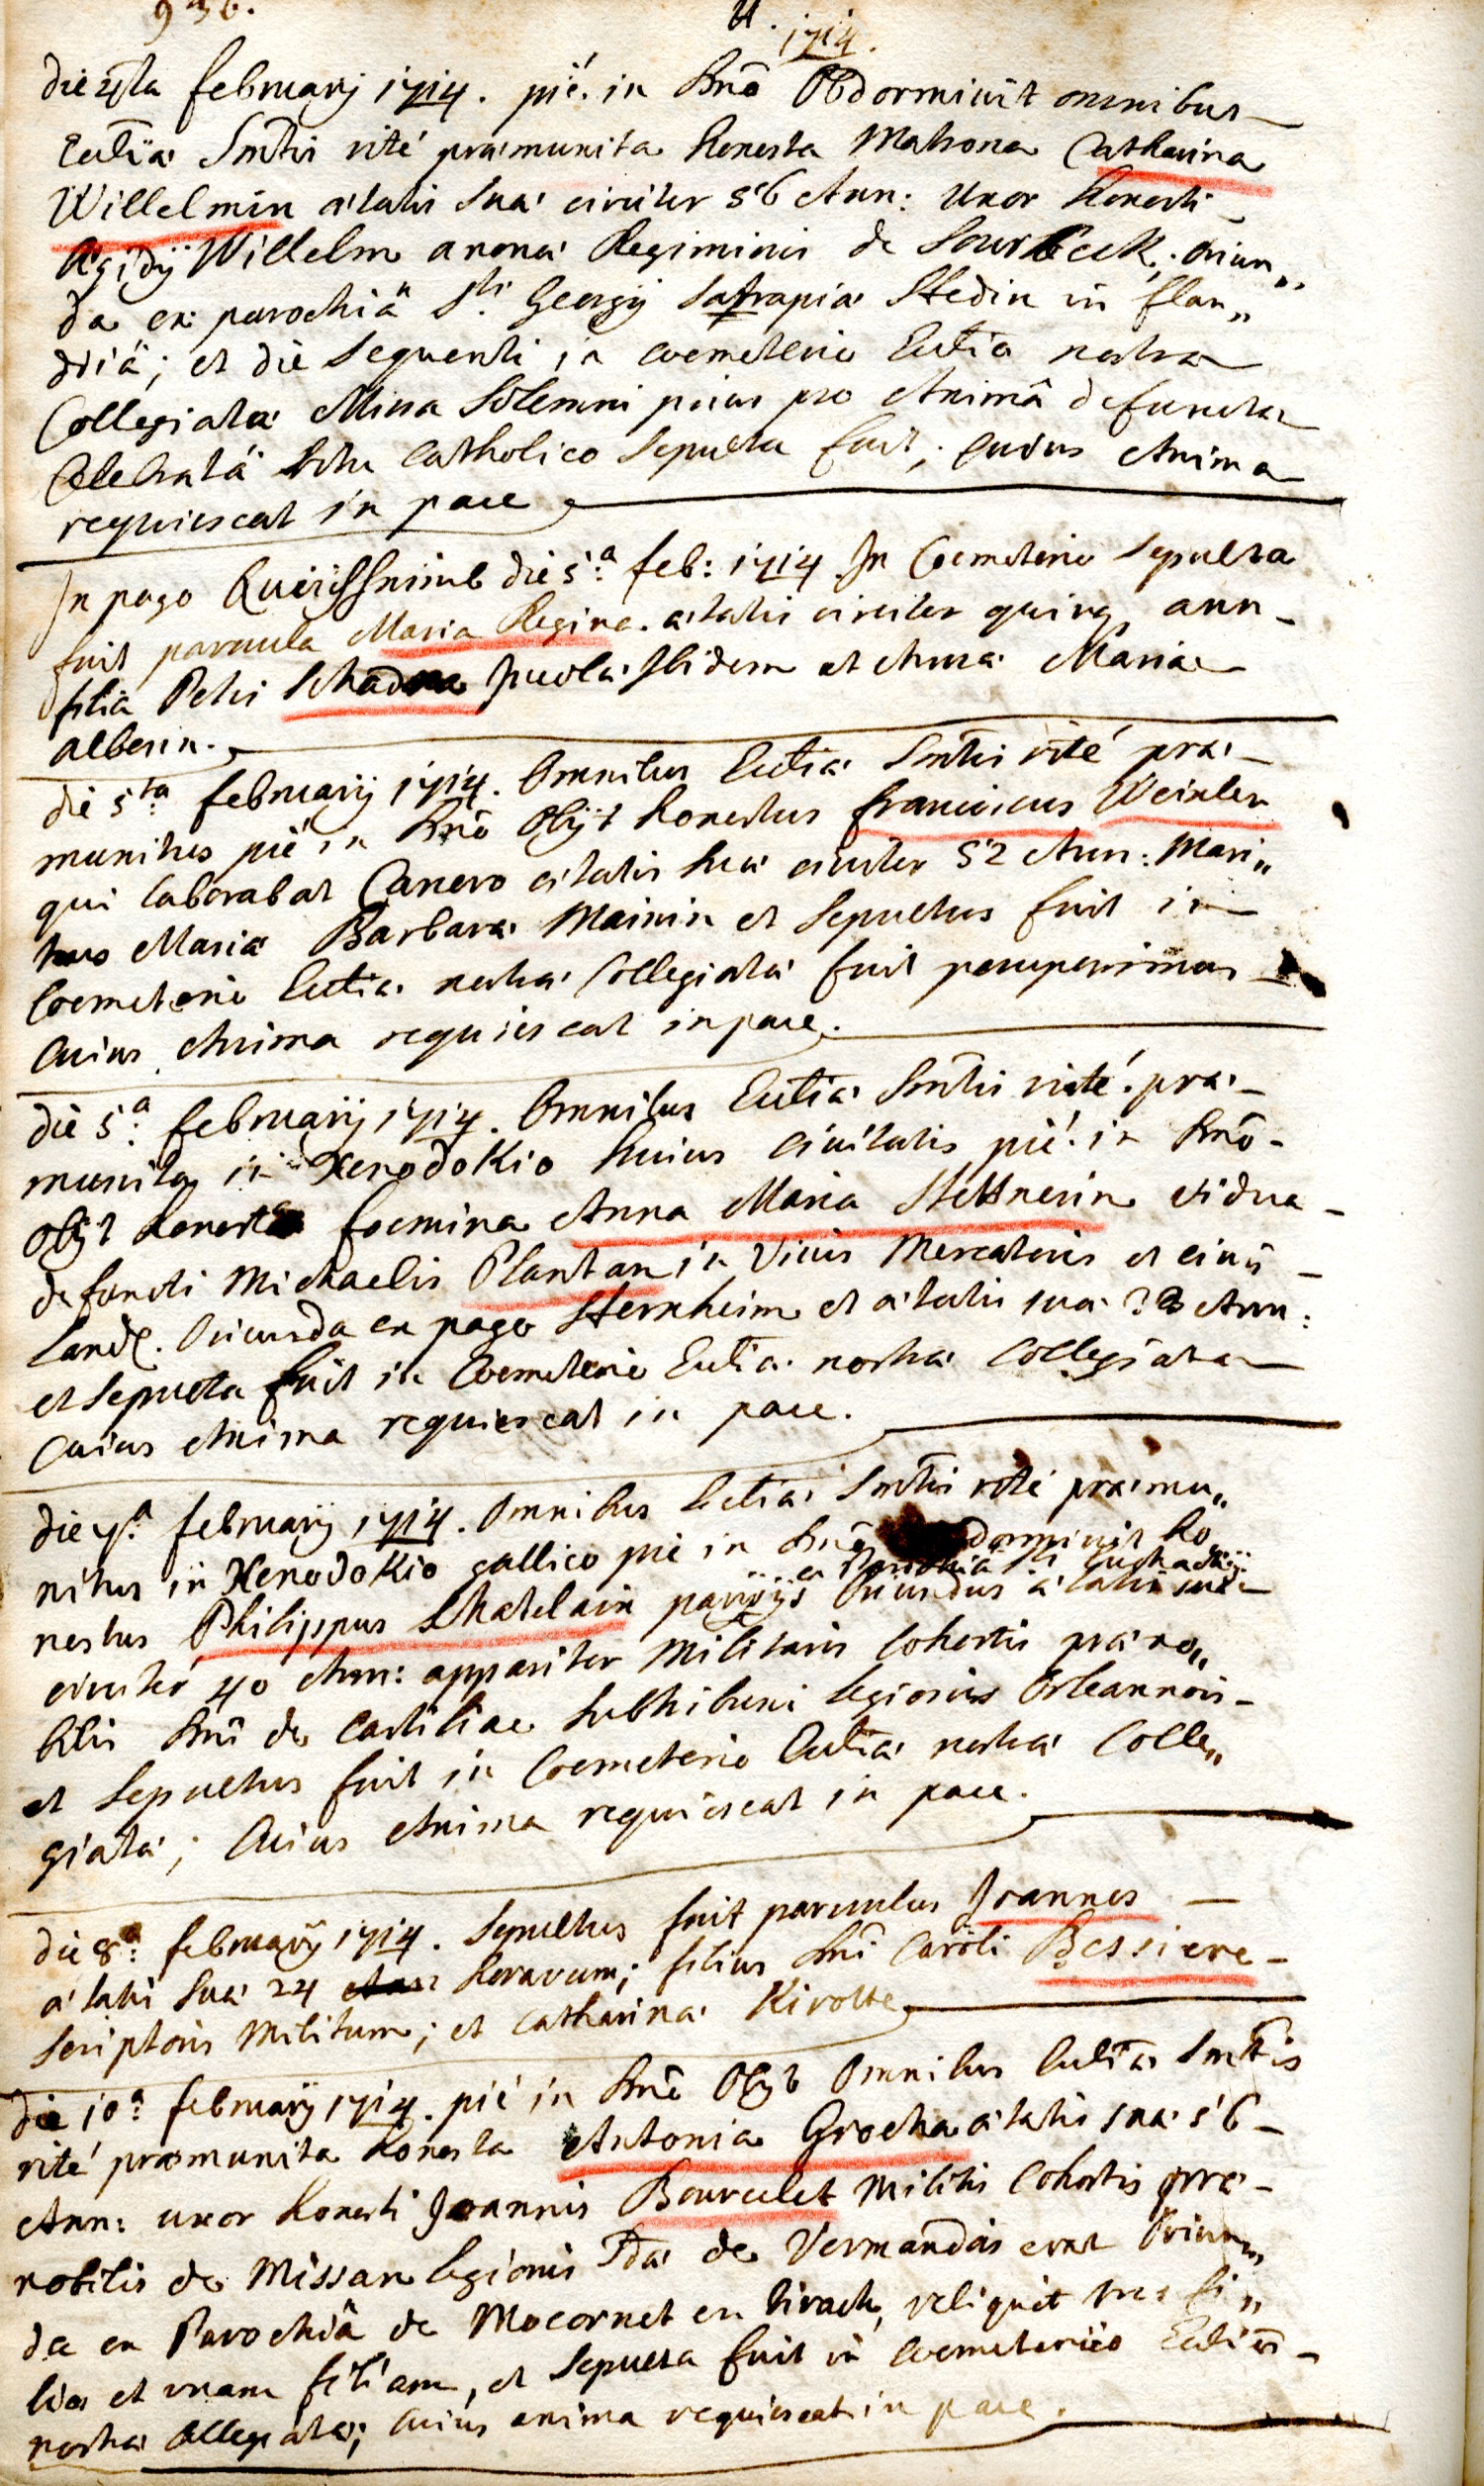 936.
U. 1714.
die 4ta february 1714. pié. in Dnō Obdormivit omnibus
Ecctiæ Smtis rité præmunita honesta Matrona Catharina
Willelmin ætatis suæ circiter 56 Ann: Uxor honesti
Ægidÿ Willelm anonæ Regiminis de Sourbeck; oriun„
da ex parochiâ Sti Georgÿ Satrapiæ Stedin in flan„
driâ; et die sequenti in coemeterio Ecctiæ nostræ
Collegiatæ Missa Solemni prius pro Animâ defunctæ
Celebratâ Ritu Catholico Sepulta fuit; Cuius Anima
requiescat in pace
In pago Queichheimb die 5.a feb: 1714 In Coemeterio Sepulta
fuit parvula Maria Regina. ætatis circiter quinq ann
filia Petri Schadna Incolæ Ibidem et Annæ Mariæ
alberin.
die 5ta february 1714. Omnibus Ecctiæ Smtis rité præ-
munitus pié in Dnō Obÿt honestus franciscus Weixler
qui laborabat Canero ætatis suæ circiter 52 Ann: Mari„
tus Mariæ Barbaræ Mainin et Sepultus fuit in
Coemeterio Ecctiæ nostræ Collegiatæ fuit pauperrimus
Cuius Anima requiescat in pace.
die 5.a february 1714. Omnibus Ecctiæ Smtis rité. præ-
munita in Xenodokio huius Civitatis pié. in Dnō-
Obÿt honesta foemina Anna Maria Stettnerin vidua-
defuncti Michaelis Plantan in Vivis Mercatoris et civis
Land. Oriunda ex pago Sternheim et ætatis suæ 38 Ann:
et Sepulta fuit in Coemeterio Ecctiæ nostræ Collegiatæ
Cuius Anima requiescat in pace.
die 7.a february 1714. Omnibus Ecctiæ Smtis rité præmu„
nitus in Xenodokio gallico pié in Dnō dormivit ho„
ex Parochiâ Sti Eustachÿ
nestus Philippus Chatelain parisÿs Oriundus ætatis suæ
circiter 40 Ann: apparitor Militaris Cohortis præno„
bilis Dni de Castiliac Subtribuni legionis Orleannois-
et Sepultus fuit in Coemeterio Ecctiæ nostræ Colle„
giatæ; Cuius Anima requiescat in pace.
die 8.a february 1714. Sepultus fuit parvulus Joannes
ætatis suæ 24 horarum; filius Dni Caroli Bessiere-
scriptoris Militum; et Catharinæ Kirotte
die 10.a february 1714. pié in Dnō Obÿt Omnibus Ecctiæ Smtis
rité præmunita honesta Antonia Grocha ætatis suæ 56-
Ann: uxor honesti Joannis Bourcelet Militis Cohortis præ-
nobilis de Missan legionis Dda de Vermandois erat Oriun„
da ex Parochiâ de Mocornet en tirach, reliquit tres fi„
lios et unam filiam, et Sepulta fuit in Coemeterio Ecctiæ-
nostræ Collegiatæ; Cuius anima requiescat in pace.